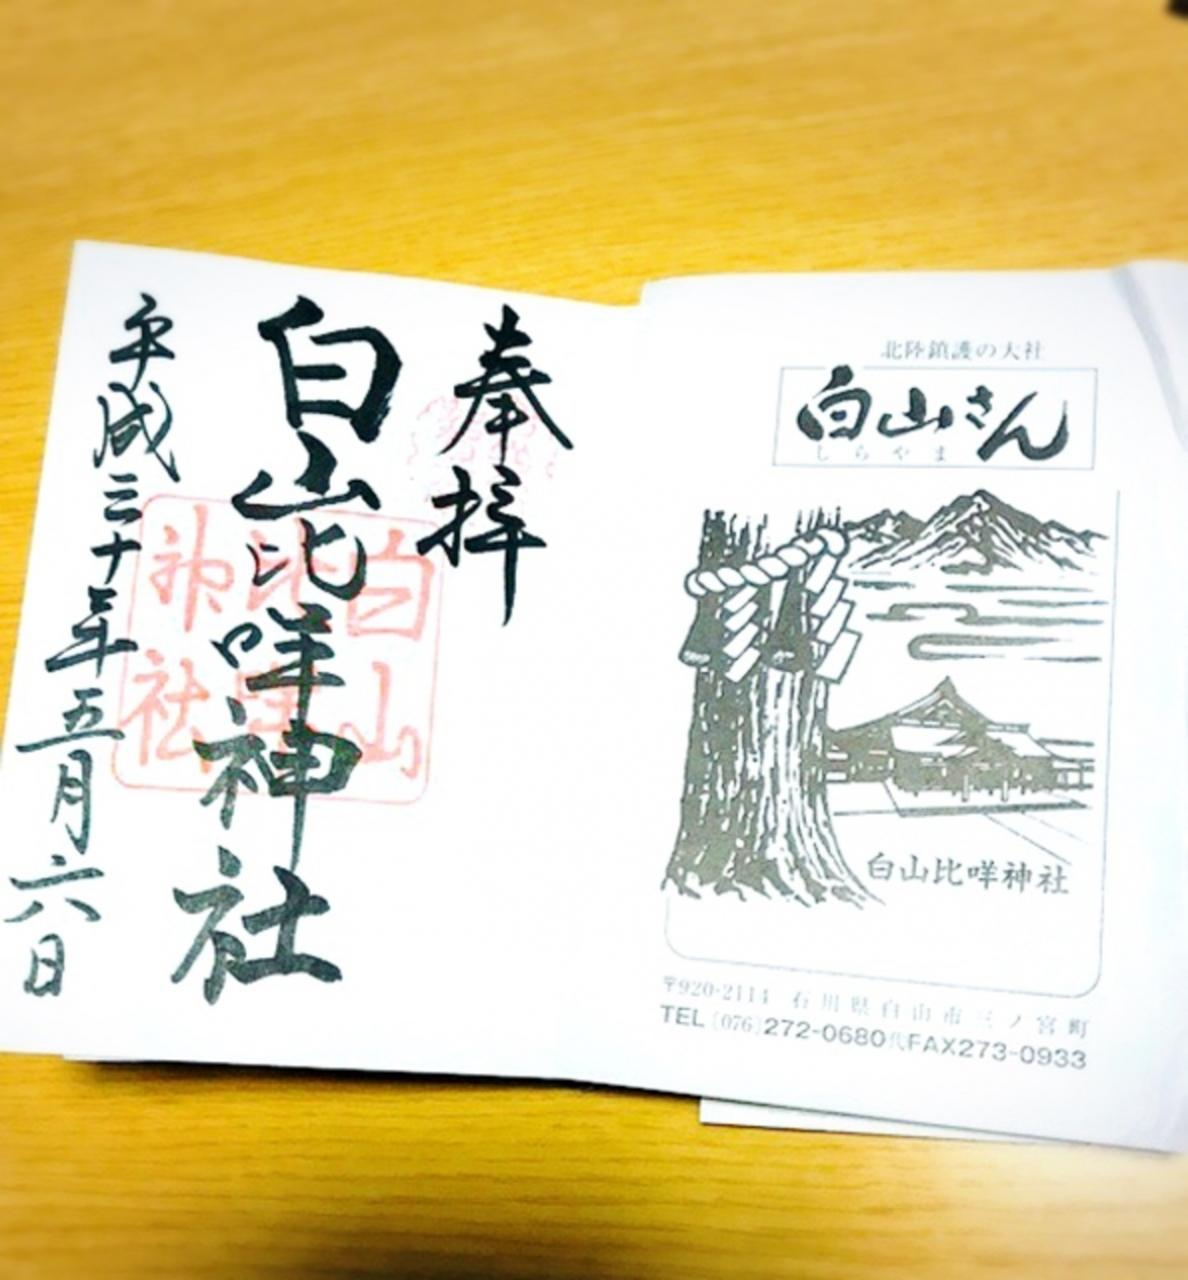 奉拝
白山比咩神社
平成三十年五月六日
白山
比咩
神社
北陸鎮護の大社
白山さん
しらやま
白山比咩神社
〒920-2114 石川県白山市三ノ宮町
TEL〔076〕272-0680代FAX273-0933